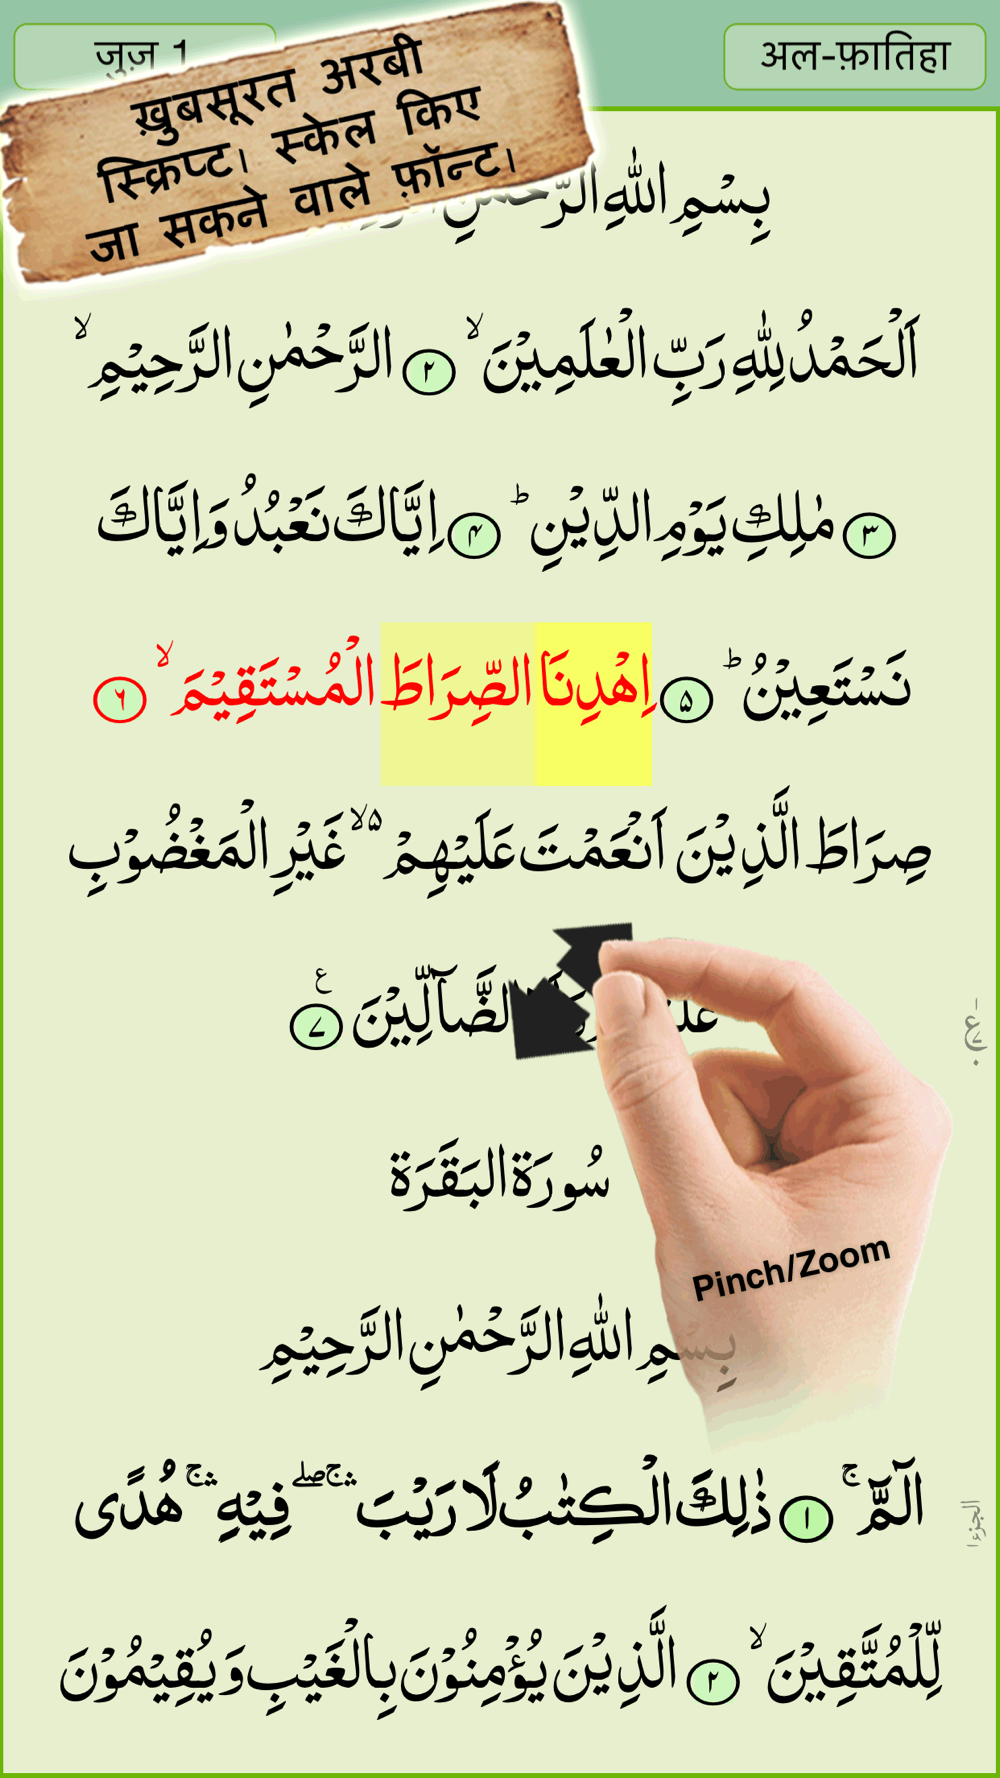 जुज़ 1
अल-फ़ातिहा
ख़ुबसूरत अरबी
स्क्रिप्ट। स्केल किए
जा सकने वाले फ़ॉन्ट।
بِسْمِ اللهِ الرَّحْمٰنِ
اَلْحَمْدُ لِلّٰهِ رَبِّ الْعٰلَمِيْنَ ۙ ٢ الرَّحْمٰنِ الرَّحِيْمِ ۙ
٣ مٰلِكِ يَوْمِ الدِّيْنِ ؕ ۴ اِيَّاكَ نَعْبُدُ وَاِيَّاكَ
نَسْتَعِيْنُ ؕ ۵ اِهْدِنَا الصِّرَاطَ الْمُسْتَقِيْمَ ۙ ٦
صِرَاطَ الَّذِيْنَ اَنْعَمْتَ عَلَيْهِمْ ۙ۵ غَيْرِ الْمَغْضُوْبِ
الضَّآلِّيْنَ ٧ ع
سُورَة البَقَرَة
بِسْمِ اللهِ الرَّحْمٰنِ الرَّحِيْمِ
الٓمّٓ ۚ ١ ذٰلِكَ الْكِتٰبُ لَا رَيْبَ ۛۚۖ فِيْهِ ۛۚ هُدًى
الجزء ١
لِّلْمُتَّقِيْنَ ۙ ٢ الَّذِيْنَ يُؤْمِنُوْنَ بِالْغَيْبِ وَيُقِيْمُوْنَ
Pinch/Zoom